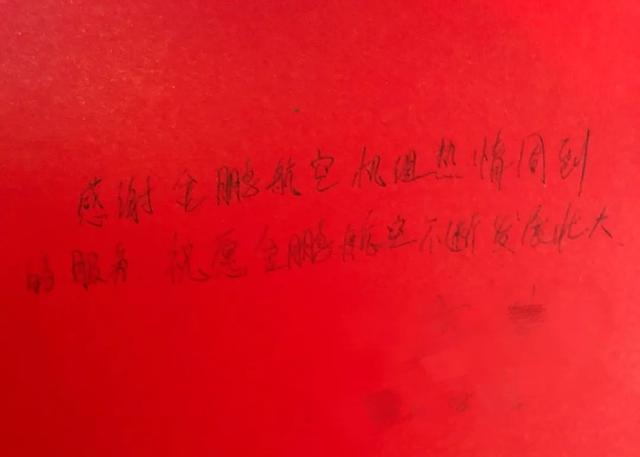 感谢金鹏航空机组热情周到
的服务 祝愿金鹏航空不断发展壮大